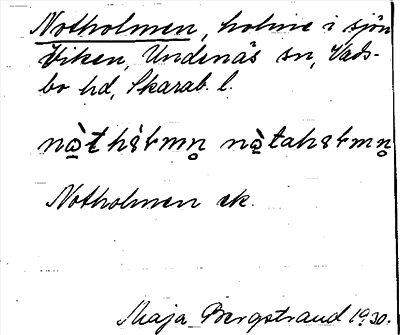 Notholmen, holme i sjön
Viken, Undenäs sn, Vads-
bo hd, Skarab. l.
Notholmen ek.
Maja Bergstrand 1930.